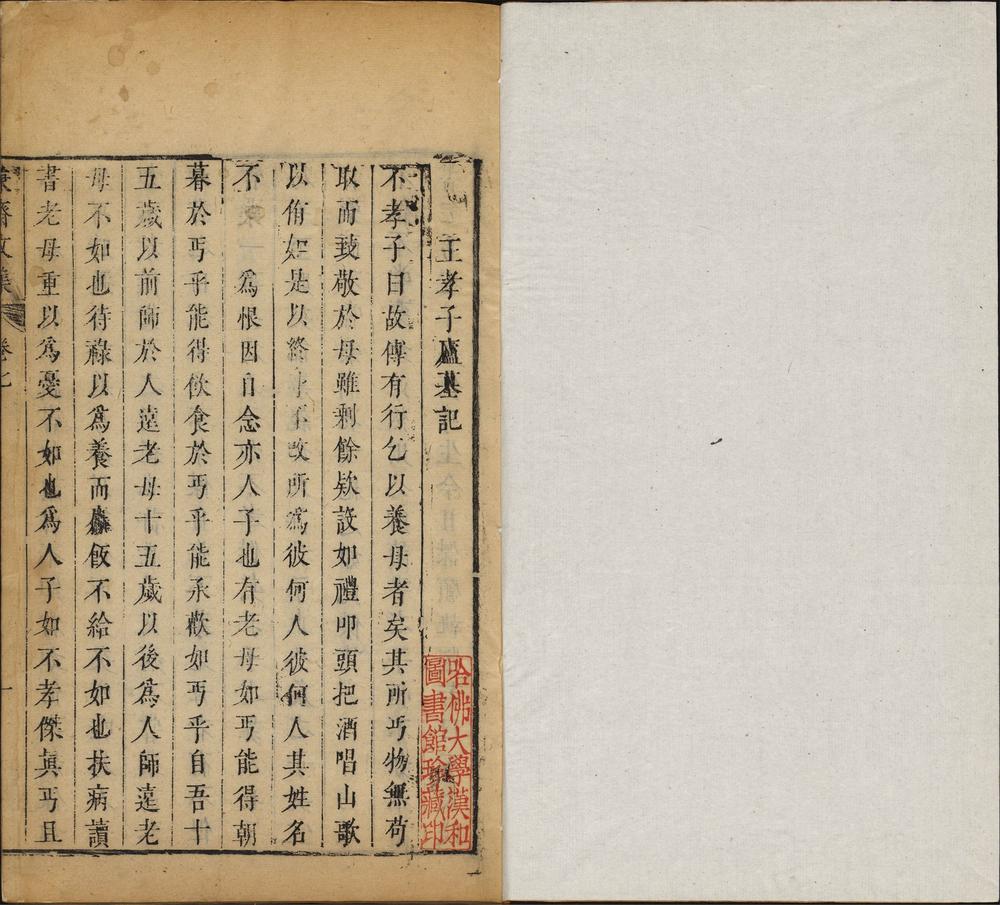 王孝子廬墓記
不孝子曰故傳有行乞以養母者矣其所丐物無苟
取而致敬於母雖剩餘欵設如禮叩頭把酒唱山歌
以侑如是以終身不改所爲彼何人彼何人其姓名
不爲恨因自念亦人子也有老母如丐能得朝
暮於丐乎能得飲食於丐乎能承歡如丐乎自吾十
五歲以前師於人遠老母十五歲以後爲人師遠老
母不如也待祿以爲養而麤飯不給不如也扶病讀
書老母重以爲憂不如也爲人子如不孝傑眞丐且
兼濟文集 卷七 一
哈佛大學漢和
圖書館珍藏印